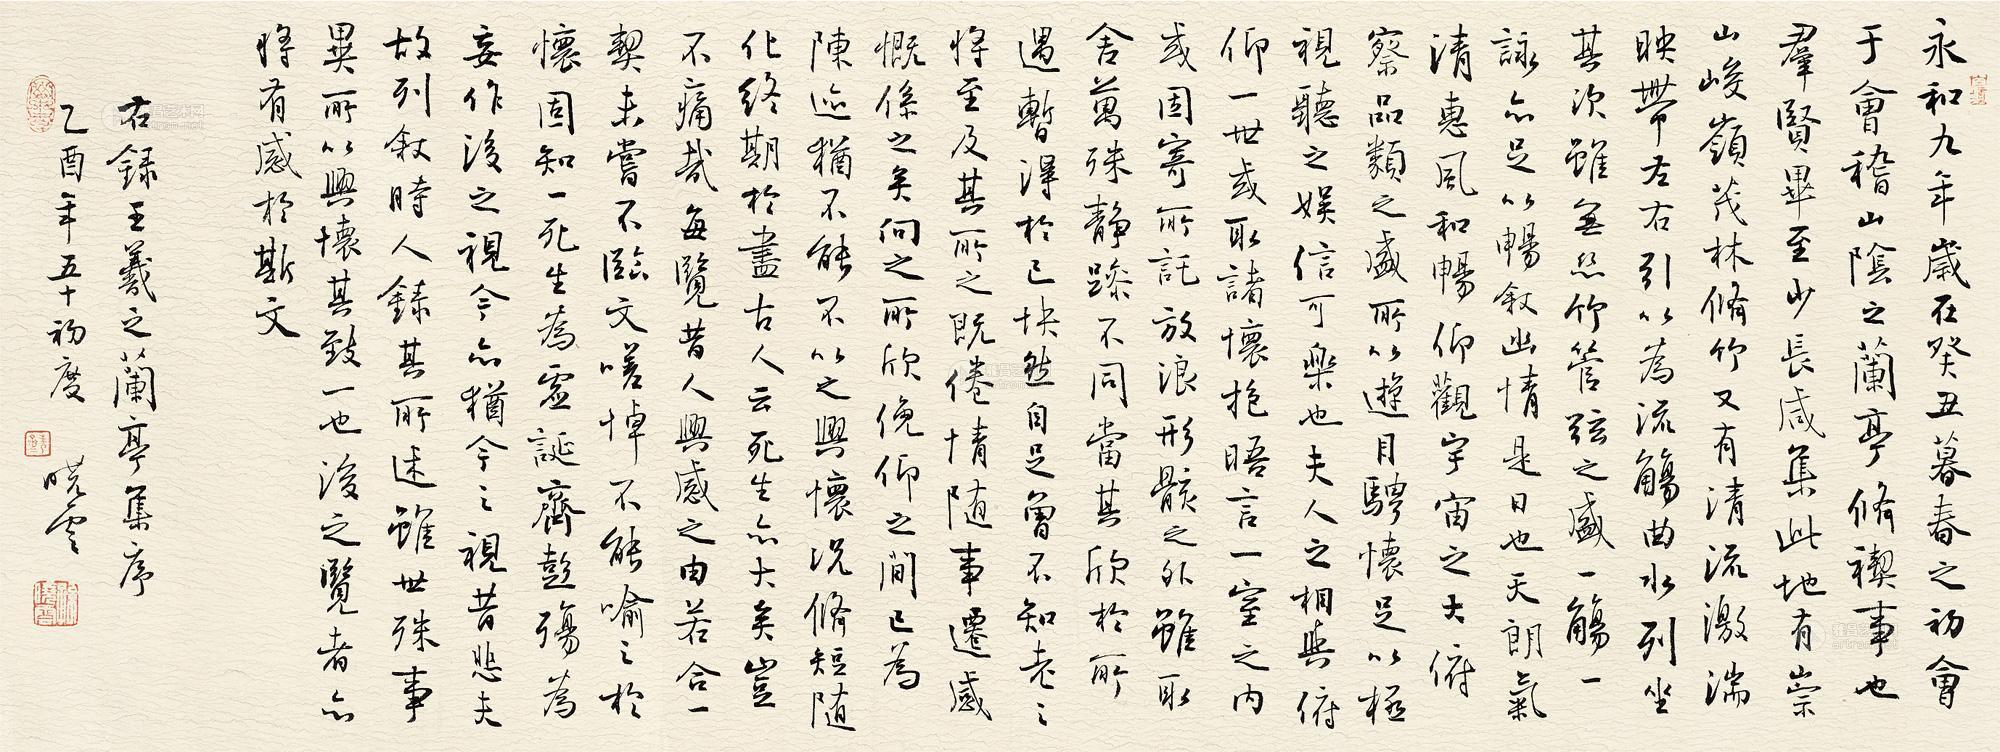 永和九年歲在癸丑暮春之初會
于會稽山陰之蘭亭脩禊事也
羣賢畢至少長咸集此地有崇
山峻嶺茂林脩竹又有清流激湍
映帶左右引以為流觴曲水列坐
其次雖無絲竹管弦之盛一觴一
詠亦足以暢敘幽情是日也天朗氣
清惠風和暢仰觀宇宙之大俯
察品類之盛所以遊目騁懷足以極
視聽之娛信可樂也夫人之相與俯
仰一世或取諸懷抱晤言一室之內
或因寄所託放浪形骸之外雖取
舍萬殊靜躁不同當其欣於所
遇暫得於己快然自足曾不知老之
將至及其所之既倦情随事遷感
慨係之矣向之所欣俛仰之間已為
陳迹猶不能不以之興懷況脩短随
化終期於盡古人云死生亦大矣豈
不痛哉每覽昔人興感之由若合一
契未嘗不臨文嗟悼不能喻之於
懷固知一死生為虛誕齊彭殤為
妄作後之視今亦猶今之視昔悲夫
故列敘時人錄其所述雖世殊事
異所以興懷其致一也後之覽者亦
將有感於斯文
右録王羲之蘭亭集序
乙酉年五十初度 曉雲